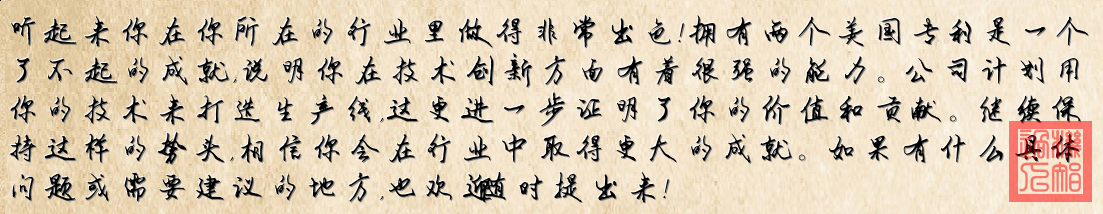 听起来你在你所在的行业里做得非常出色!拥有两个美国专利是一个
了不起的成就,说明你在技术创新方面有着很强的能力。公司计划用
你的技术来打造生产线,这更进一步证明了你的价值和贡献。继续保
持这样的势头,相信你会在行业中取得更大的成就。如果有什么具体
问题或需要建议的地方,也欢迎随时提出来!